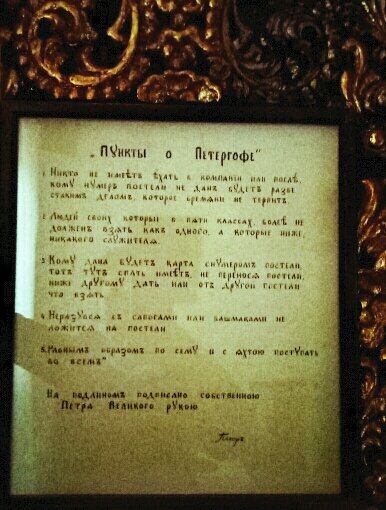 „Пункты о Петергофе“
1. Никто не имеѣтъ ѣхать в компании или послѣ,
кому нумеръ постели не данъ будетъ разве
стакимъ деломъ, которое времяни не терпитъ.
2. Людей своихъ которыи в пяти классахъ, болѣе не
долженъ взять какъ одного, а которые ниже,
никакого служителя.
3. Кому дана будетъ карта снумеромъ постели,
тотъ тутъ спать имѣетъ, не перенося постели,
ниже другому дать или отъ другой постели
что взять.
4. Неразувся съ сапогами или башмаками не
ложится на постели.
5. Равнымъ образомъ по сему и с яхтою поступать
во всемъ"
На подлиномъ подписано собственою
Петра Великого рукою
Петръ